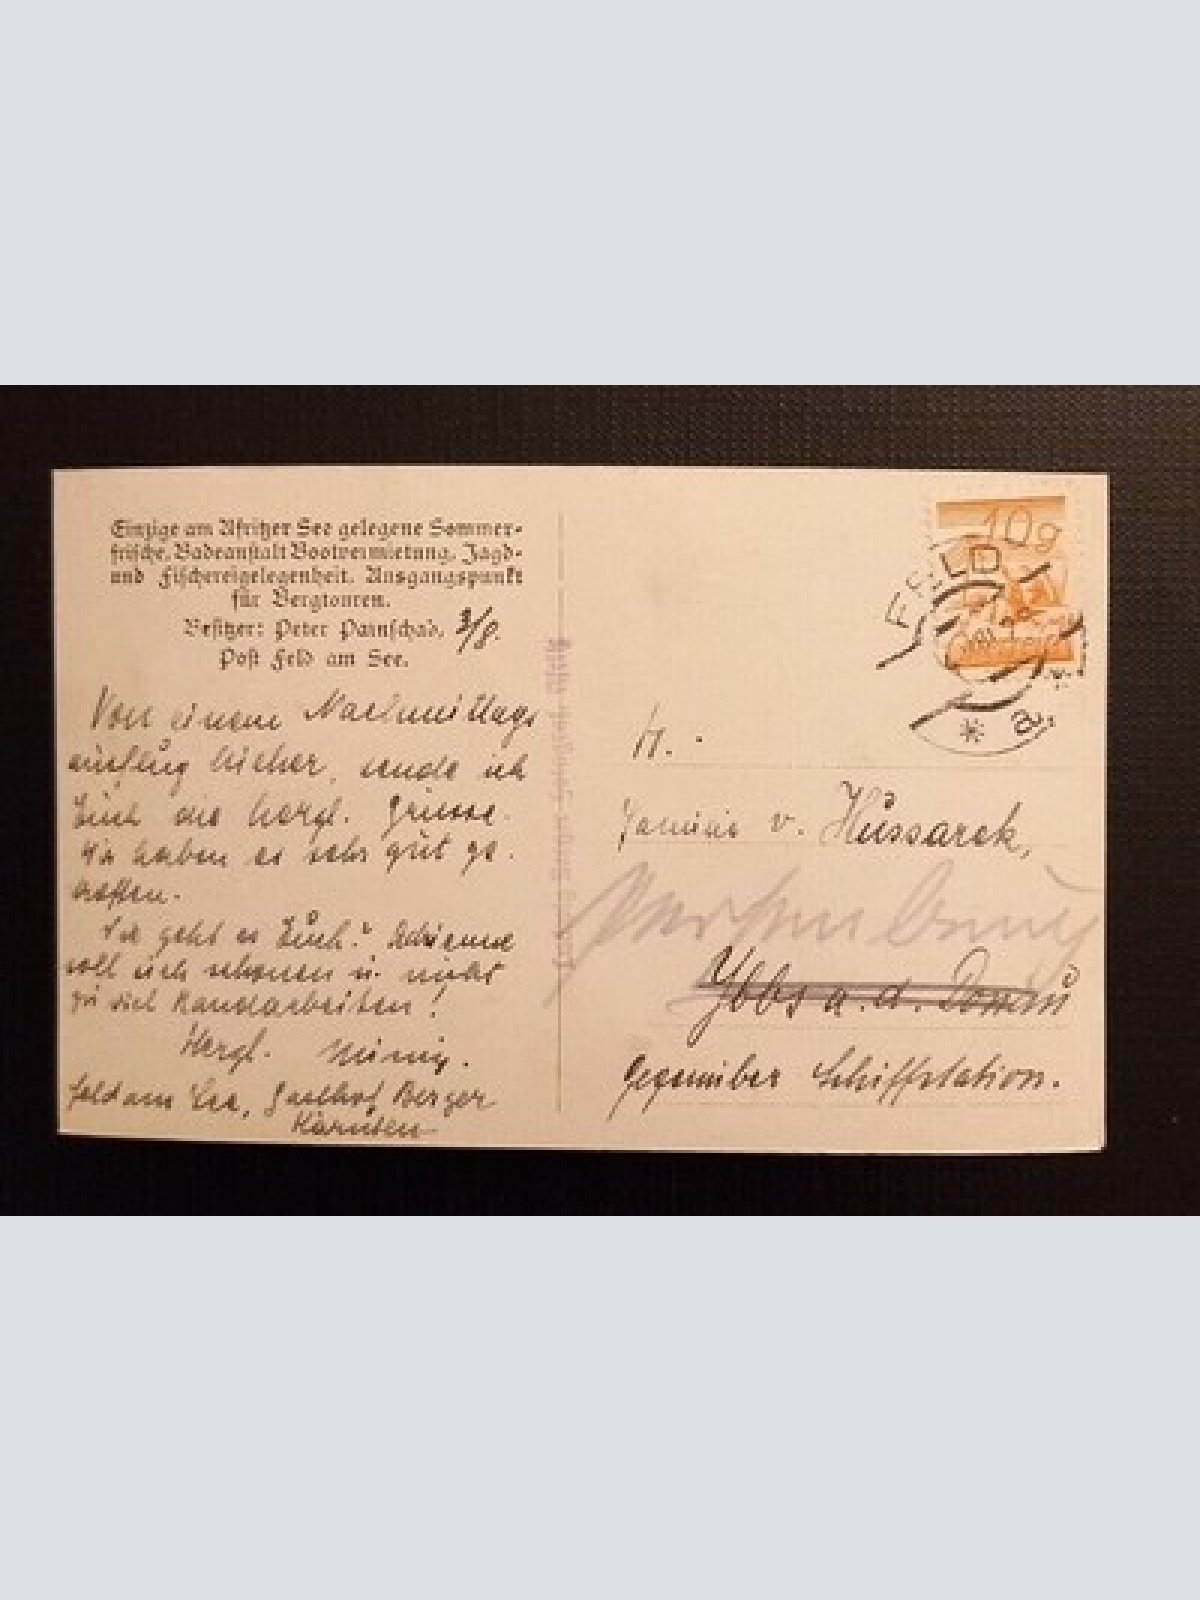 Einzige am Afritzer See gelegene Sommer-
frische, Badeanstalt Bootvermietung, Jagd-
und Fischereigelegenheit. Ausgangspunkt
für Bergtouren.
Besitzer: Peter Painschab, 3/8.
Post Feld am See.
Von einem Nachmittags
ausflug hieher, sende ich
Euch die herzl. Grüsse.
Wir haben es sehr gut ge-
troffen.
Wie geht es Euch? Adrienne
soll sich schonen u. nicht
zu viel Handarbeiten!
Herzl.
Feld am See, Gasthof Berger
Kärnten
10g
FELD a.
H.
Familie v. Hussarek,
Ybbs a. d. Donau
gegenüber Schiffstation.